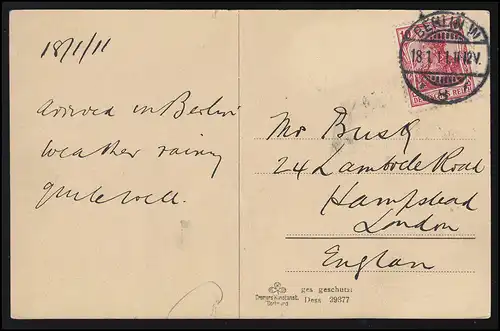 18/1/11
arrived in Berlin
weather rainy
quite well.
BERLIN W
18.1.11.11-12V.
10
DEUTSCHES REICH
Mr Busk
24 Lambolle Road
Hampstead
London
Englan
ges geschutzt
Dess 29877
Cramers Kunstanst.
Dortmund